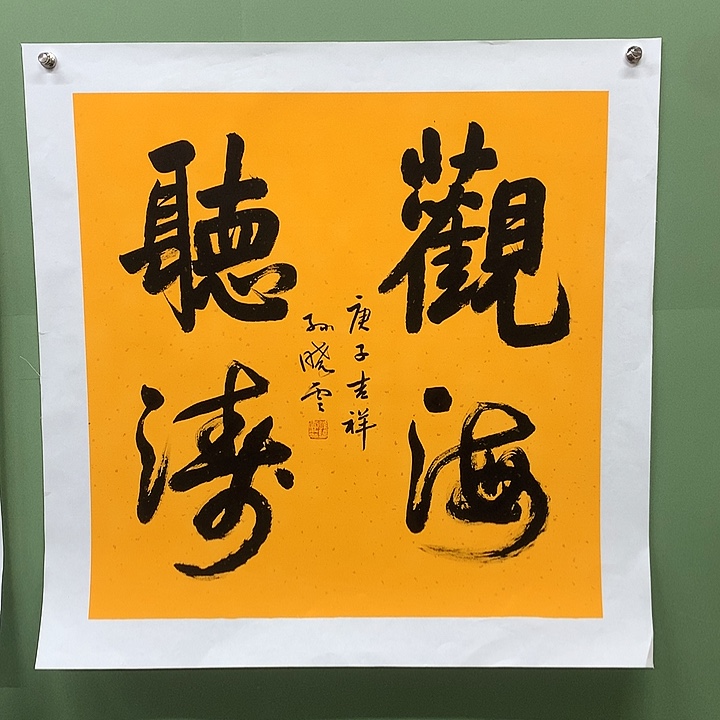 觀海
聽濤
庚子吉祥
孫曉雲